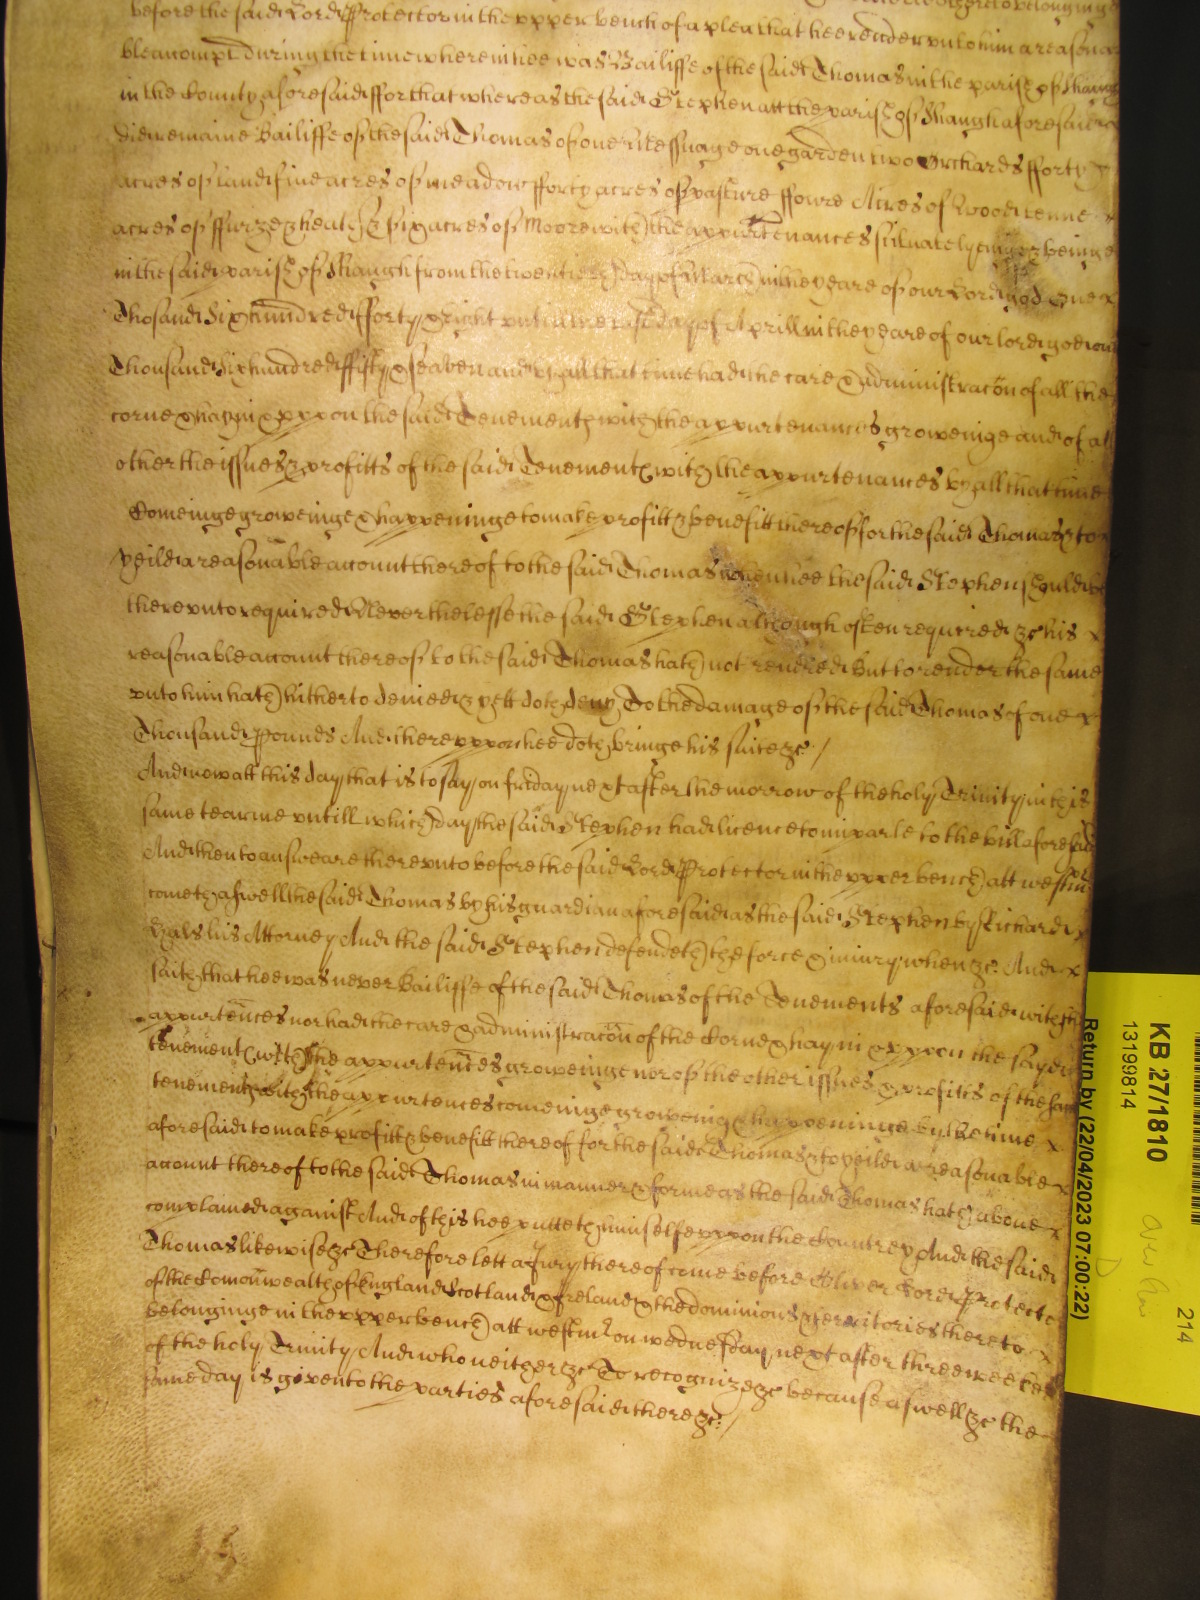 before the said Lord Protector in the upper bench of a plea that hee render unto him a reasona
ble accompt during the time wherein hee was Bailiffe of the said Thomas in the parish of Maugh
in the County aforesaid ffor that whereas the said Stephen att the parish of Maugh aforesaid
did remaine Bailiffe of the said Thomas of one Messuage one garden two Orchards fforty
acres of land five acres of meadow fforty acres of pasture ffowre Acres of Wood tenne
acres of ffurze & heath & six acres of Moore with the appurtenances situate lyeing & beinge
in the said parish of Maugh from the twentieth day of March in the yeare of our Lord god One
Thosand Six hundred fforty & eight untill the last day of Aprill in the yeare of our lord god one
Thousand six hundred ffifty & seaven and by all that time had the care & administracōn of all the
corne & hay in & uppon the said Tenements with the appurtenances groweinge and of all
other the issues & profitts of the said Tenements with the appurtenances by all that time
Comeinge groweinge & happeninge to make profitt & benefitt thereof for the said Thomas & to
yeild a reasonable account thereof to the said Thomas when hee the said Stephen should be
thereunto required Neverthelesse the said Stephen although often required &c his
reasonable account thereof to the said Thomas hath not rendred but to render the same
unto him hath hitherto denied & yett doth deny To the damage of the said Thomas of one
Thousand Pounds And thereuppon hee doth bringe his suite &c /
And now att this day that is to say on friday next after the morrow of the holy Trinity in this
same tearme untill which day the said Stephen had licence to imparle to the bill aforesaid
And then to answeare thereunto before the said Lord Protector in the upper bench att westmr
cometh aswell the said Thomas by his guardian aforesaid as the said Stephen by Richard
Hals his Attorney And the said Stephen defendeth the force & iniury when &c And
saith that hee was never Bailiffe of the said Thomas of the Tenements aforesaid with the
appurtences nor had the care & administracōn of the Corne & hay in & uppon the sayd
tenements with the appurtences groweinge nor of the other issues & profitts of the said
tenements with the appurtences comeinge groweing & happeninge by the time
aforesaid to make profitt & benefitt thereof for the said Thomas & to yeild a reasonable
account thereof to the said Thomas in manner & forme as the said Thomas hath above
complained against And of this hee putteth himselfe uppon the Countrey And the said
Thomas likewise &c Therefore lett a Jury thereof come before Oliver Lord Protector
of the Comōnwealth of England Scotland & Ireland & the dominions & territories thereto
belonginge in the upper bench att westmr on wednesday next after three weekes
of the holy Trinity And who neither &c To recognize &c because aswell &c the
same day is given to the parties aforesaid there &c /
KB 27/1810
13199814
Return by (22/04/2023 07:00:22)
214